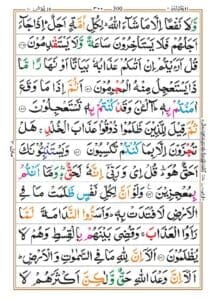 ۳۰۰ 300
وَّلَا نَفْعًا اِلَّا مَا شَآءَ اللّٰهُ ؕ لِكُلِّ اُمَّةٍ اَجَلٌ ؕ اِذَا جَآءَ
اَجَلُهُمْ فَلَا يَسْتَاْخِرُوْنَ سَاعَةً وَّلَا يَسْتَقْدِمُوْنَ
قُلْ اَرَءَيْتُمْ اِنْ اَتٰىكُمْ عَذَابُهٗ بَيَاتًا اَوْ نَهَارًا مَّا
ذَا يَسْتَعْجِلُ مِنْهُ الْمُجْرِمُوْنَ اَثُمَّ اِذَا مَا وَقَعَ
اٰمَنْتُمْ بِهٖ ؕ آٰلْئٰنَ وَقَدْ كُنْتُمْ بِهٖ تَسْتَعْجِلُوْنَ
ثُمَّ قِيْلَ لِلَّذِيْنَ ظَلَمُوْا ذُوْقُوْا عَذَابَ الْخُلْدِ ۚ هَلْ
تُجْزَوْنَ اِلَّا بِمَا كُنْتُمْ تَكْسِبُوْنَ وَيَسْتَنْۢبِئُوْنَكَ
اَحَقٌّ هُوَ ؕ قُلْ اِيْ وَرَبِّيْۤ اِنَّهٗ لَحَقٌّ ؕ وَمَاۤ اَنْتُمْ
بِمُعْجِزِيْنَ وَلَوْ اَنَّ لِكُلِّ نَفْسٍ ظَلَمَتْ مَا فِى
الْاَرْضِ لَافْتَدَتْ بِهٖ ؕ وَاَسَرُّوا النَّدَامَةَ لَمَّا
رَاَوُا الْعَذَابَ ۚ وَقُضِيَ بَيْنَهُمْ بِالْقِسْطِ وَهُمْ لَا
يُظْلَمُوْنَ اَلَاۤ اِنَّ لِلّٰهِ مَا فِى السَّمٰوٰتِ وَالْاَرْضِ ؕ
اَلَاۤ اِنَّ وَعْدَ اللّٰهِ حَقٌّ وَّلٰكِنَّ اَكْثَرَهُمْ لَا